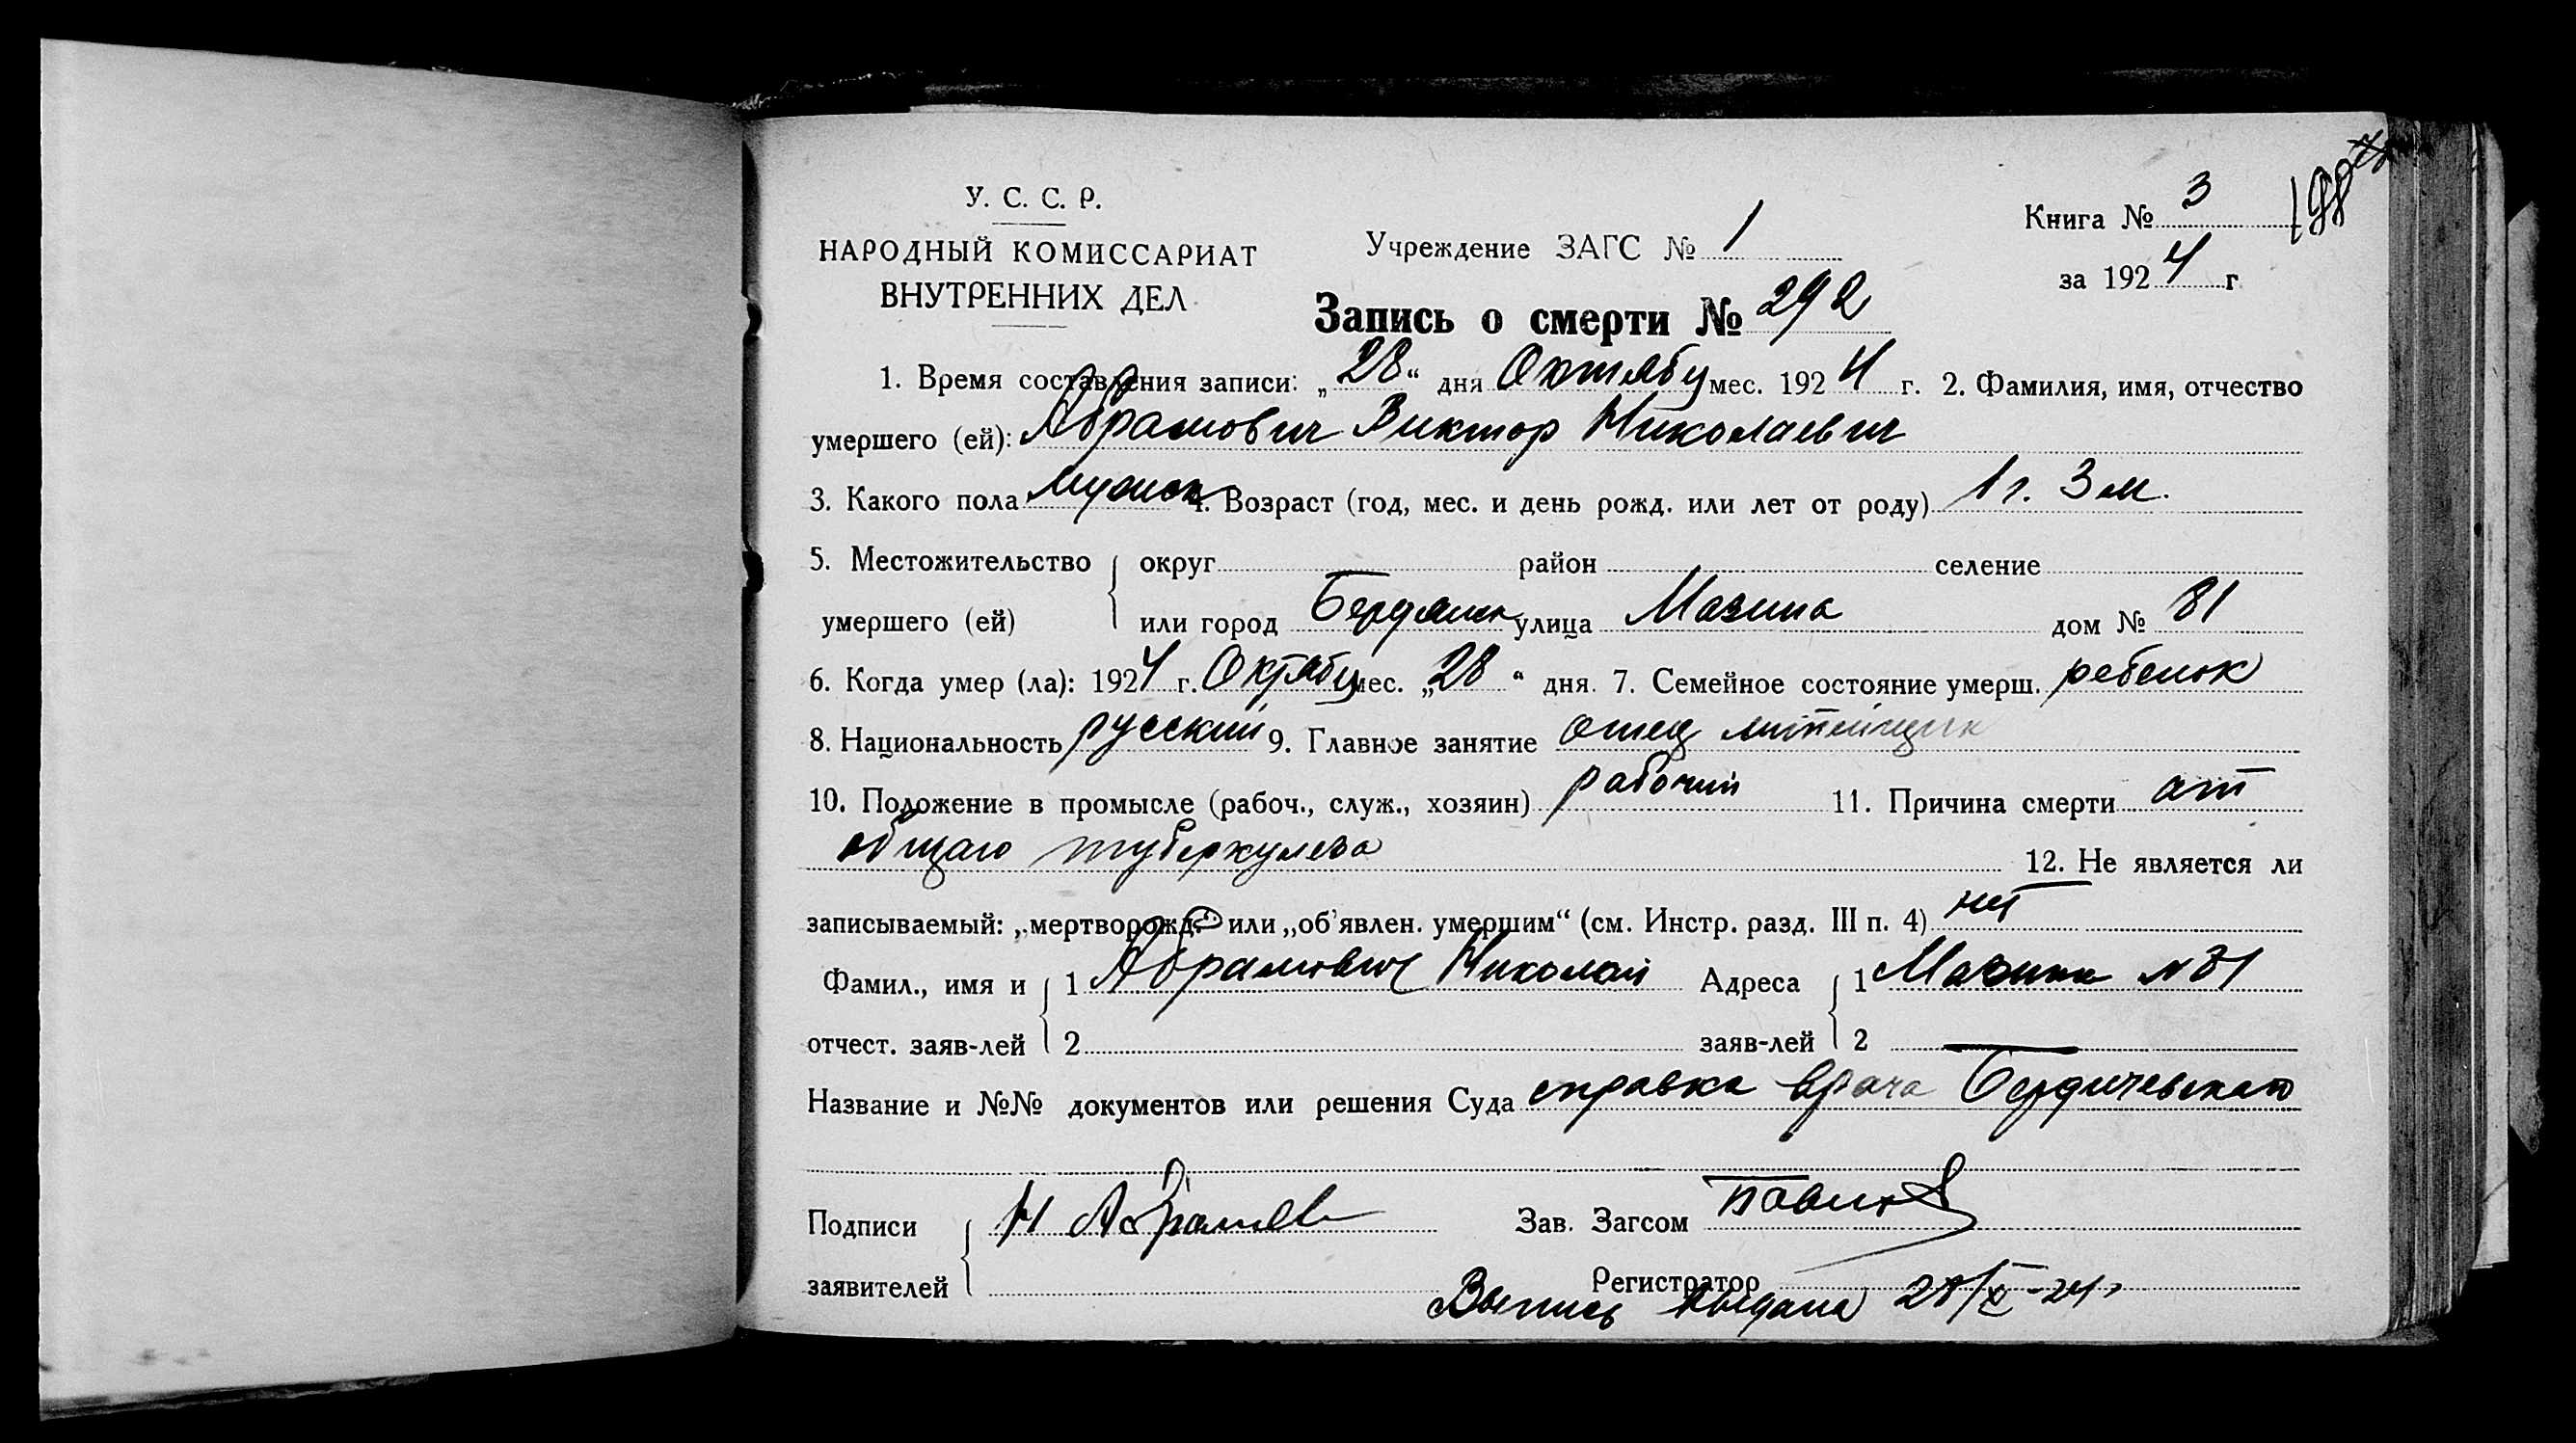 У. С. С. Р.
НАРОДНЫЙ КОМИССАРИАТ
ВНУТРЕННИХ ДЕЛ
Учреждение ЗАГС № 1
Книга № 3
198
за 1924 г
Запись о смерти № 292
1. Время составления записи: „28“ дня Октября мес. 1924 г. 2. Фамилия, имя, отчество
умершего (ей): Абрамович Виктор Николаевич
3. Какого пола мужск 4. Возраст (год, мес. и день рожд. или лет от роду) 1 г. 3 м.
5. Местожительство округ район селение
умершего (ей) или город Бердянск улица Мазина дом № 81
6. Когда умер (ла): 1924 г. Октября мес. „28“ дня. 7. Семейное состояние умерш. ребенок
8. Национальность русский 9. Главное занятие отец литейщик
10. Положение в промысле (рабоч., служ., хозяин) рабочий 11. Причина смерти от
общаго туберкулеза 12. Не является ли
записываемый: „мертворожд.“ или „об'явлен. умершим“ (см. Инстр. разд. III п. 4) нет
Фамил., имя и 1 Абрамович Николай Адреса 1 Мазина № 81
отчест. заяв-лей 2 заяв-лей 2
Название и №№ документов или решения Суда справка врача Бердичевскаго
Подписи Н Абрамов Зав. Загсом
заявителей Регистратор
Выпись выдана 28/X-24г